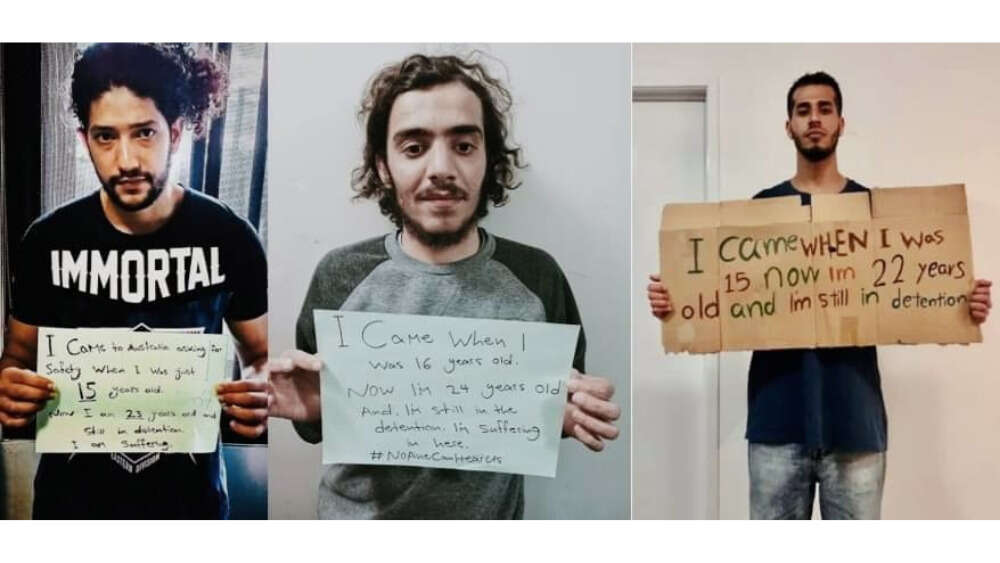 IMMORTAL
I Came to Australia asking for
Safety when I was just
15 years old.
Now I am 23 years old and
still in detention.
I am suffering.
EASTERN DIVISION
I Came when I
was 16 years old.
Now I'm 24 years old
And. I'm still in the
detention. I'm suffering
in here.
I CameWHEN I was
15 now Im 22 years
old and Im still in detention